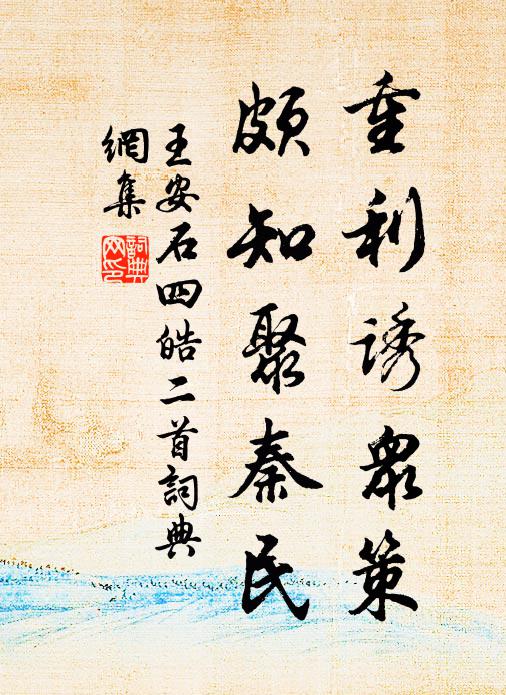 重利誘衆策
頗知聚秦民
王安石四皓二首詞典
網集
詞典
网印